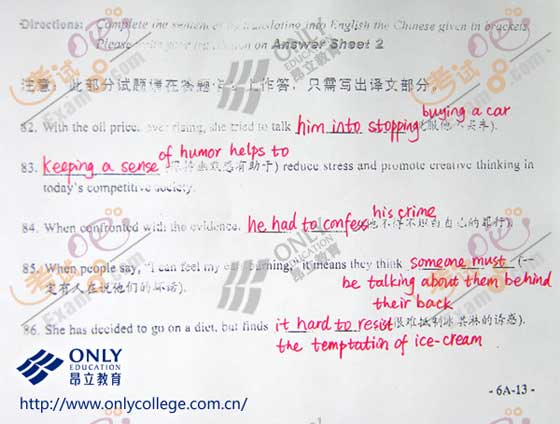 Directions: Complete the sentences by translating into English the Chinese given in brackets.
Please write your translation on Answer Sheet 2
注意：此部分试题请在答题卡2上作答，只需写出译文部分。
buying a car
82. With the oil price ever rising, she tried to talk him into stopping 他不买车).
of humor helps to
83. keeping a sense 幽默感有助于) reduce stress and promote creative thinking in
today's competitive society.
his crime
84. When confronted with the evidence, he had to confess 他不得不 自己的罪行).
85. When people say, "I can feel my ears burning," it means they think someone must (一
定有人在说他们的坏话).
be talking about them behind
their back
86. She has decided to go on a diet, but finds it hard to resist 很难抵制冰淇淋的诱惑).
the temptation of ice-cream
ONLY
EDUCATION
昂立教育
http://www.onlycollege.com.cn/
- 6A-13 -
ONLY
EDUCATION
昂立教育
考试吧
Exam8.com